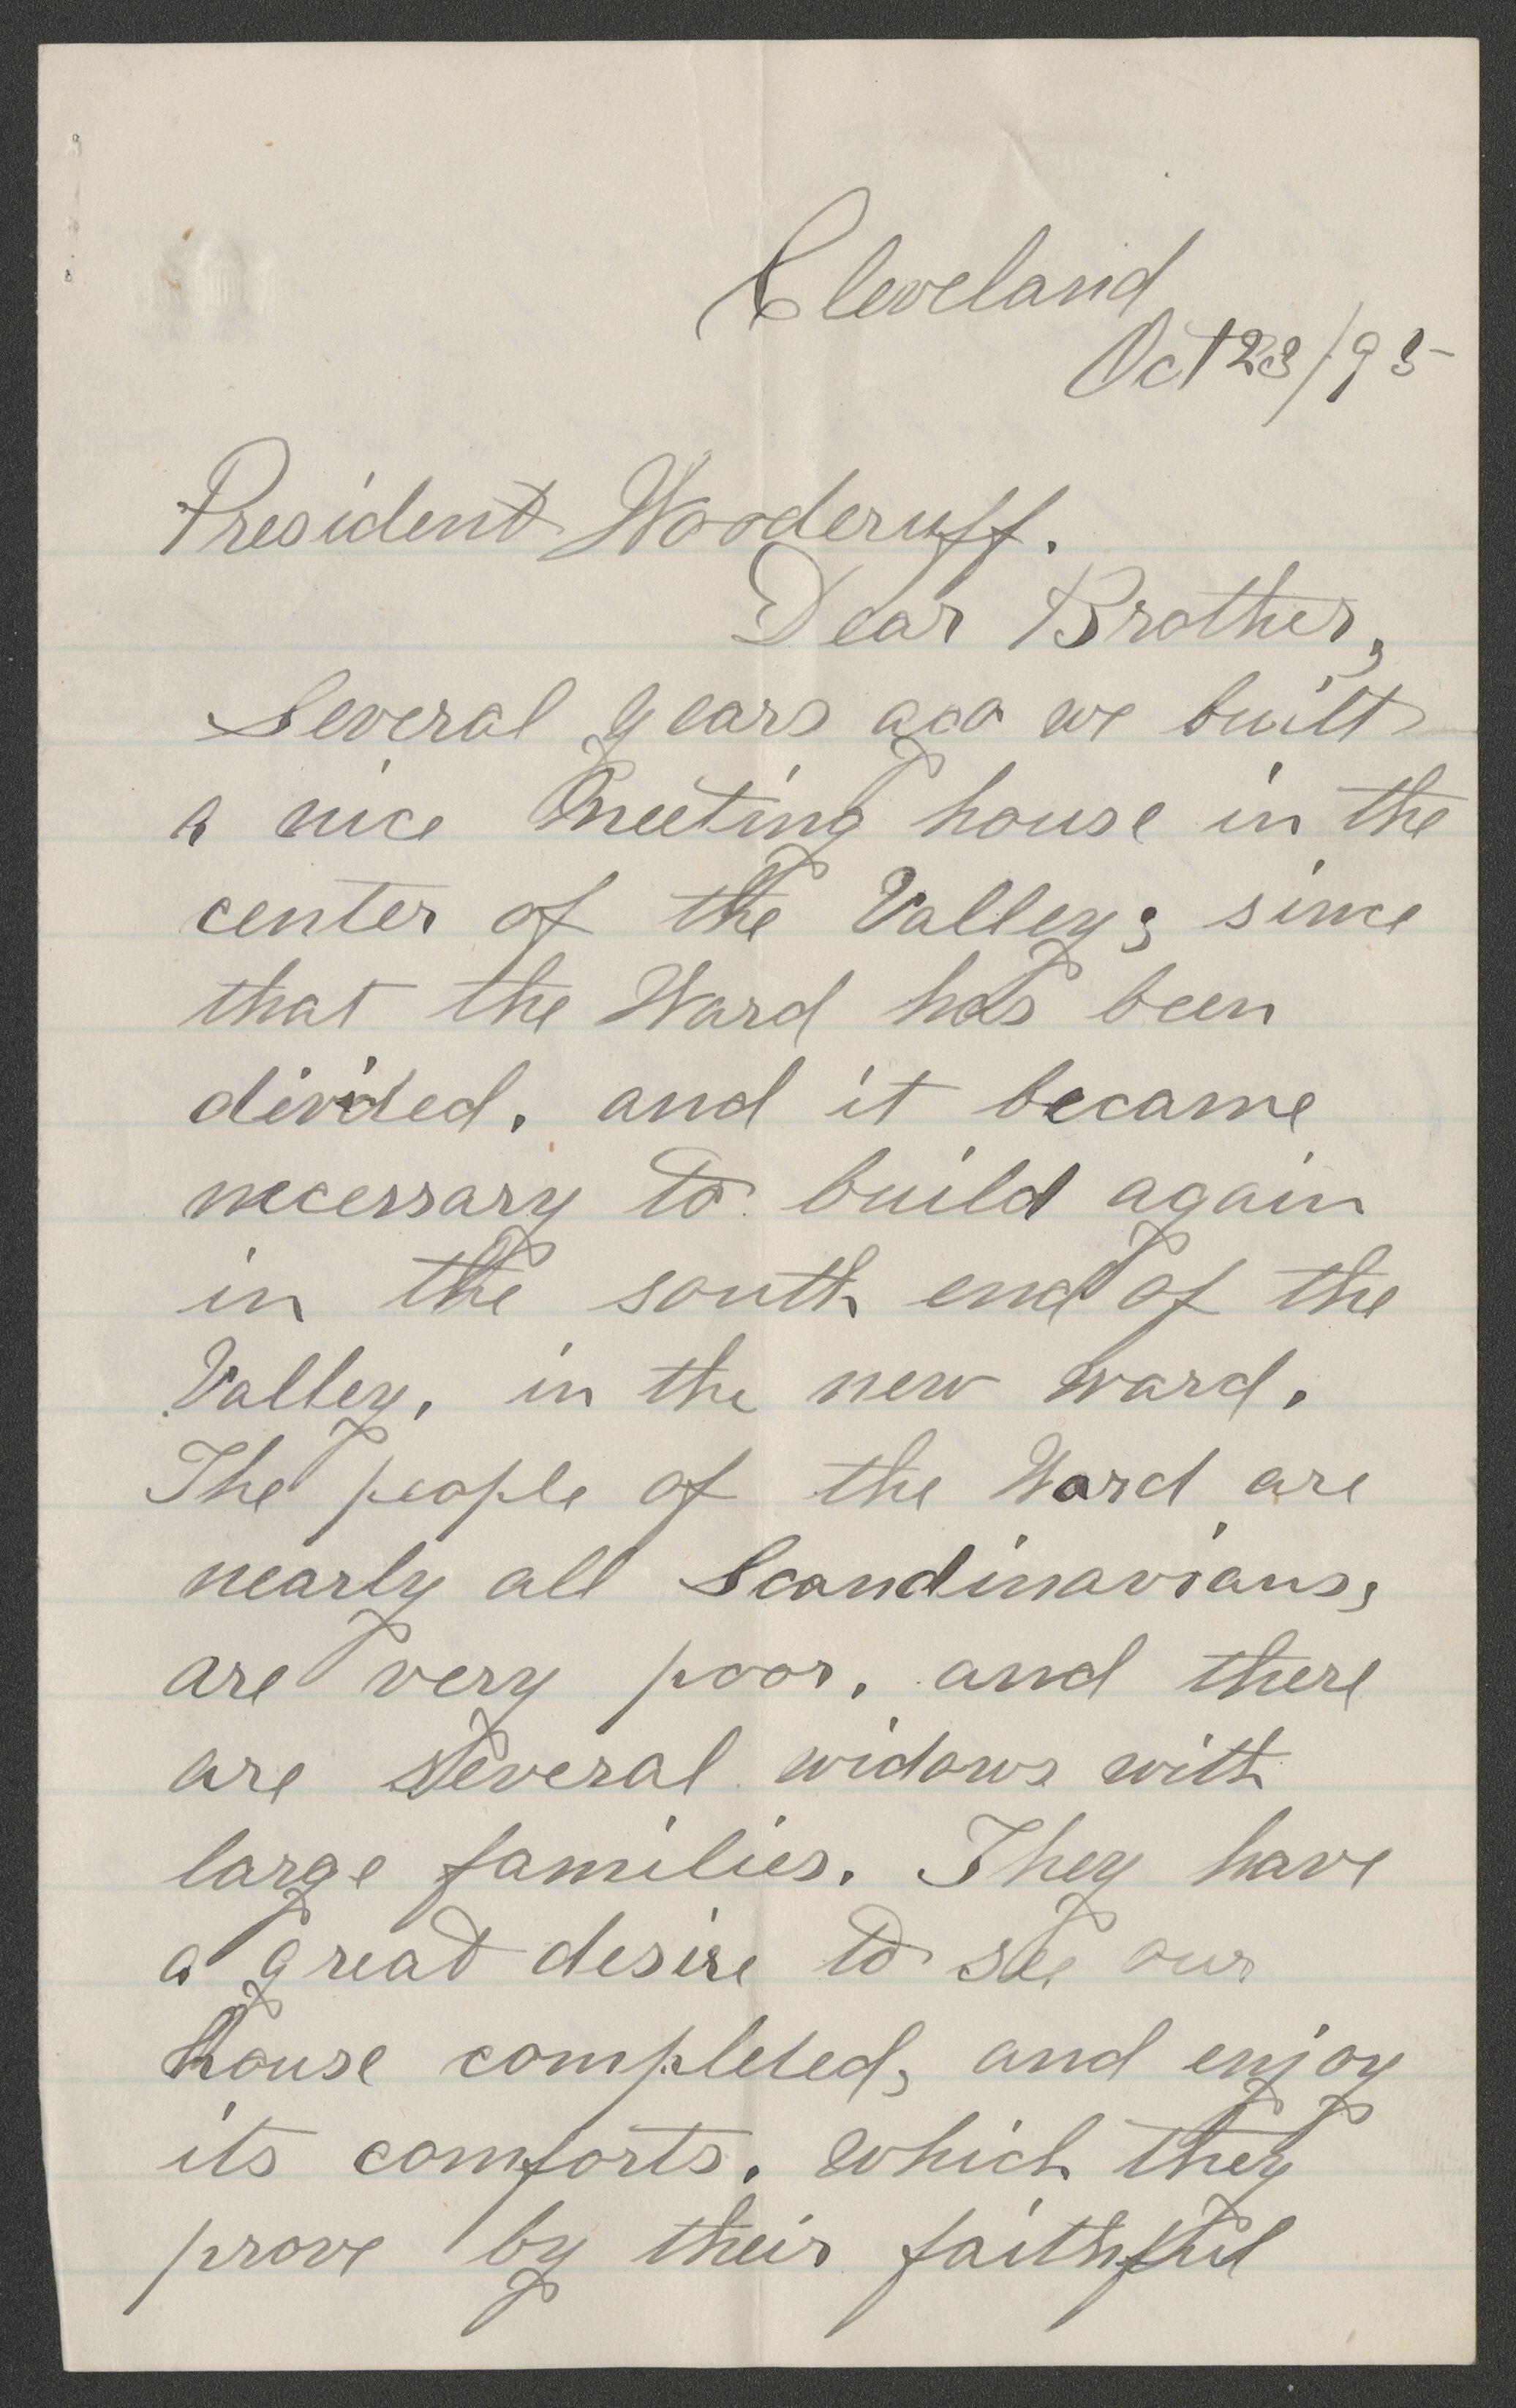 Cleveland
Oct 23/95
President Wooderuff.
Dear Brother,
Several years ago we built
a nice Meeting house in the
center of the Valley; since
that the Ward has been
divided. and it became
necessary to build again
in the south end of the
Valley. in the new ward.
The people of the Ward are
nearly all Scandinavians,
are very poor. and there
are several widows with
large families. They have
a great desire to see our
house completed, and enjoy
its comforts. which they
prove by their faithful